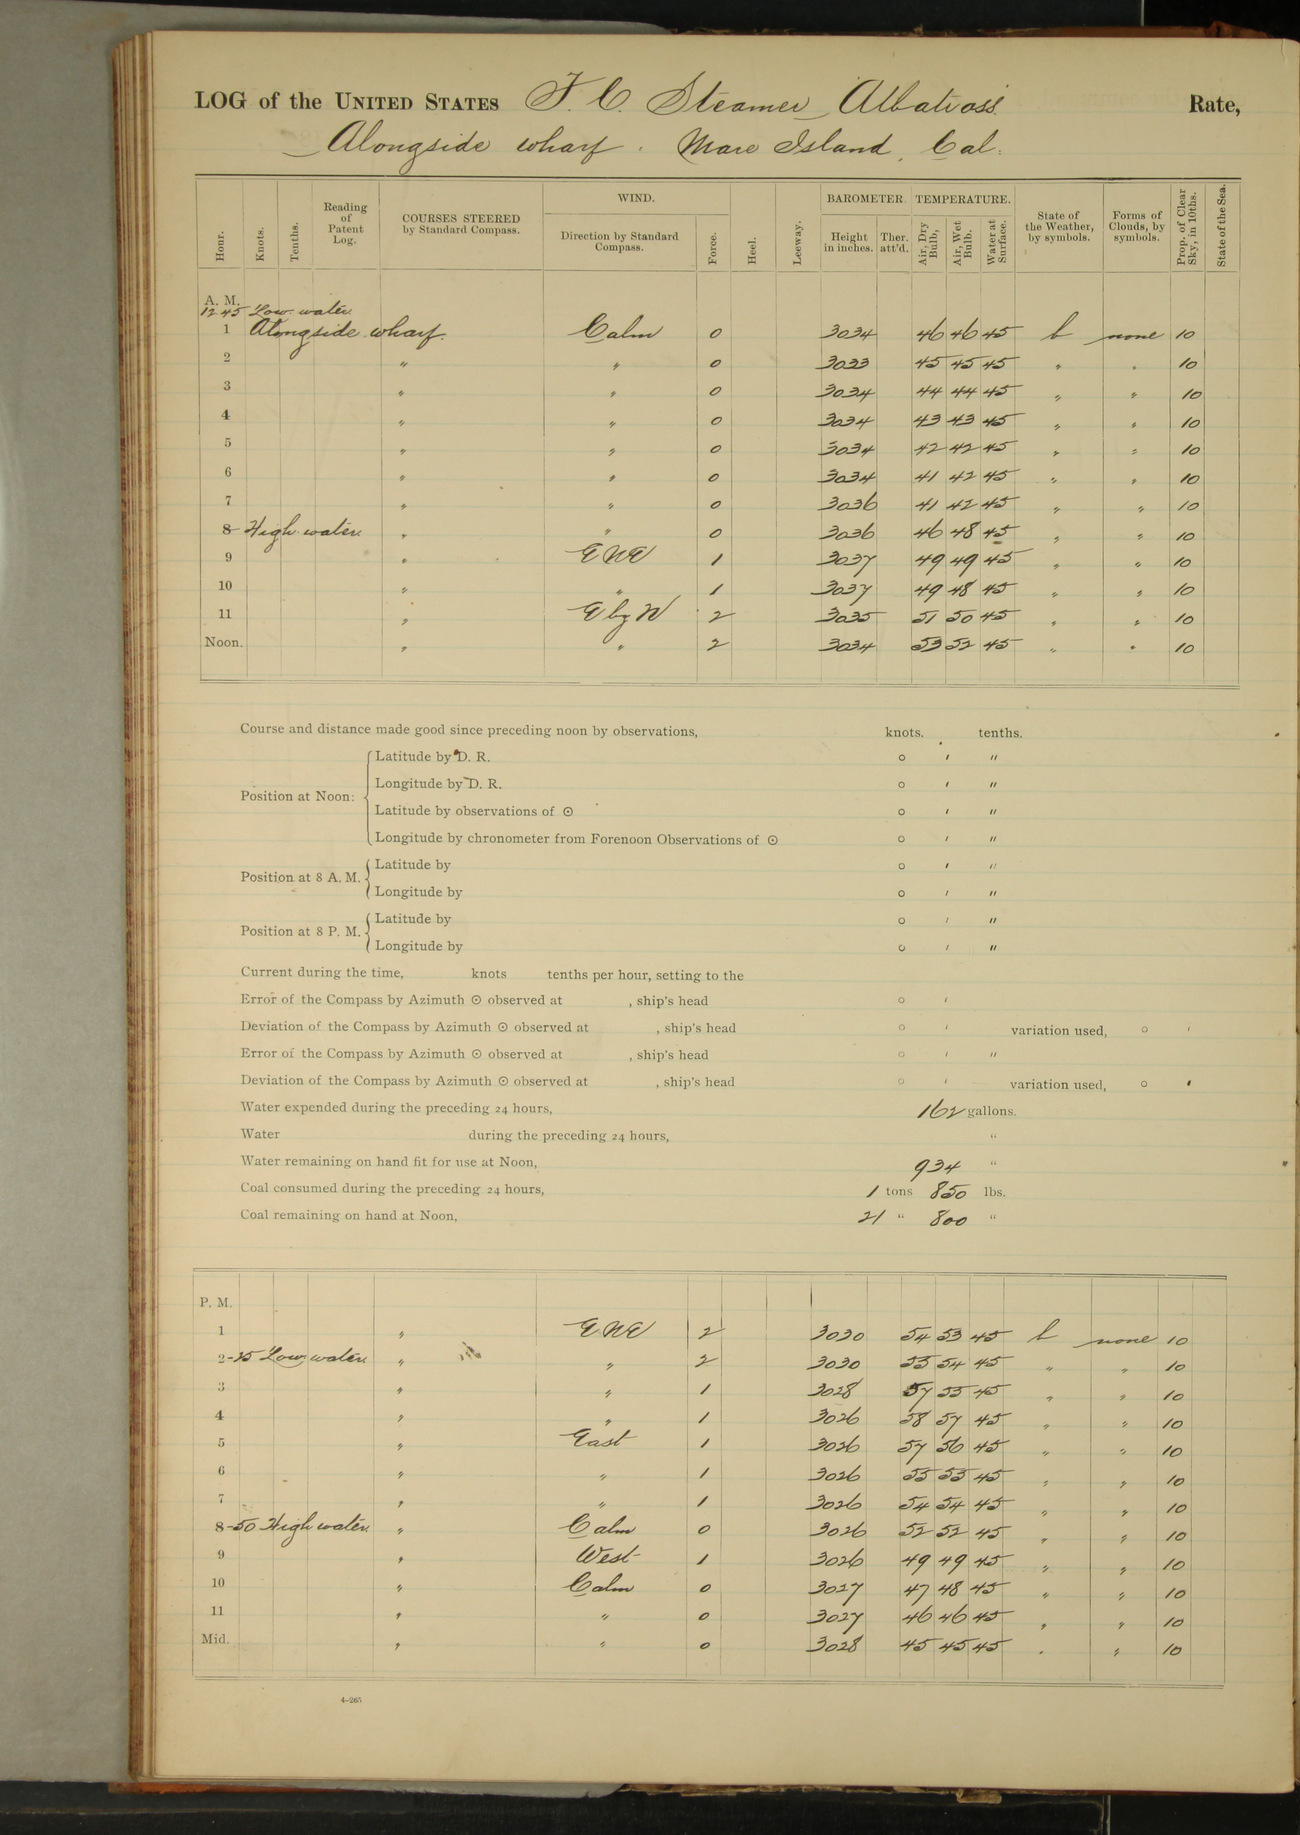 LOG of the UNITED STATES F. C. Steamer Albatross Rate,
Alongside wharf. Mare Island, Cal.
Hour. Knots. Tenths. Reading of Patent Log. COURSES STEERED by Standard Compass. WIND. Direction by Standard Compass. Force. Heel. Leeway. BAROMETER. Height in inches. Ther. att'd. TEMPERATURE. Air, Dry Bulb, Air, Wet Bulb. Water at Surface. State of the Weather, by symbols. Forms of Clouds, by symbols. Prop. of Clear Sky, in 10ths. State of the Sea.
A. M.
12 45 Low water
1 Alongside wharf. Calm 0 3034 46 46 45 b none 10
2 " " 0 3033 45 45 45 " " 10
3 " " 0 3034 44 44 45 " " 10
4 " " 0 3034 43 43 45 " " 10
5 " " 0 3034 42 42 45 " " 10
6 " " 0 3034 41 42 45 " " 10
7 " " 0 3036 41 42 45 " " 10
8 High water " " 0 3036 46 48 45 " " 10
9 " ENE 1 3037 49 49 45 " " 10
10 " " 1 3037 49 48 45 " " 10
11 " E by N 2 3035 51 50 45 " " 10
Noon. " " 2 3034 53 52 45 " " 10
Course and distance made good since preceding noon by observations, knots. tenths.
Position at Noon: Latitude by D. R. ° ′ ″
Longitude by D. R. ° ′ ″
Latitude by observations of ☉ ° ′ ″
Longitude by chronometer from Forenoon Observations of ☉ ° ′ ″
Position at 8 A. M. Latitude by ° ′ ″
Longitude by ° ′ ″
Position at 8 P. M. Latitude by ° ′ ″
Longitude by ° ′ ″
Current during the time, knots tenths per hour, setting to the
Error of the Compass by Azimuth ☉ observed at , ship's head ° ′
Deviation of the Compass by Azimuth ☉ observed at , ship's head ° ′ variation used, ° ′
Error of the Compass by Azimuth ☉ observed at , ship's head ° ′ ″
Deviation of the Compass by Azimuth ☉ observed at , ship's head ° ′ variation used, ° ′
Water expended during the preceding 24 hours, 162 gallons.
Water during the preceding 24 hours, "
Water remaining on hand fit for use at Noon, 934 "
Coal consumed during the preceding 24 hours, 1 tons 850 lbs.
Coal remaining on hand at Noon, 21 " 800 "
P. M.
1 " ENE 2 3030 54 53 45 b none 10
2-25 Low water " " 2 3030 55 54 45 " " 10
3 " " 1 3028 57 55 45 " " 10
4 " " 1 3026 58 57 45 " " 10
5 " East 1 3026 57 56 45 " " 10
6 " " 1 3026 55 55 45 " " 10
7 " " 1 3026 54 54 45 " " 10
8-50 High water " Calm 0 3026 52 52 45 " " 10
9 " West 1 3026 49 49 45 " " 10
10 " Calm 0 3027 47 48 45 " " 10
11 " " 0 3027 46 46 45 " " 10
Mid. " " 0 3028 45 45 45 " " 10
4-265